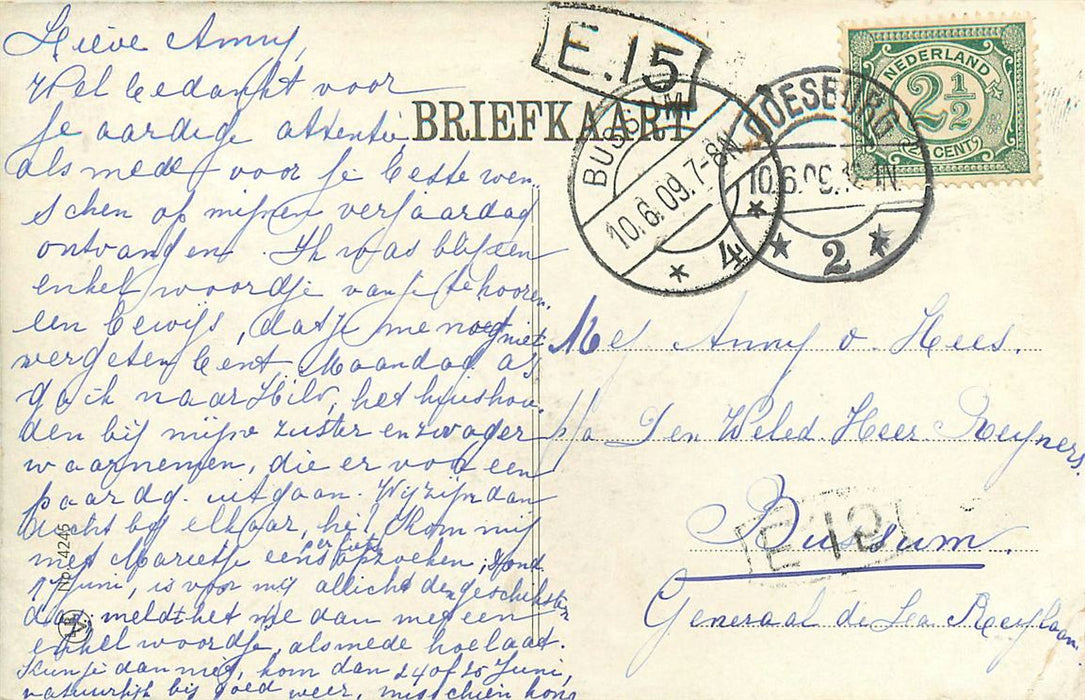 Lieve Anny,
Wel bedankt voor
je aardige attentie,
alsmede voor je beste wen
schen op mijnen verjaardag
ontvangen. Ik was blij een
enkel woordje van je te hooren.
een bewijs, dat je me nog niet
vergeten bent. Maandag as
ga ik naar Hilv, het huishou
den bij mijne zuster en zwager
waarnemen, die er voor een
paar dg. uitgaan. Wij zijn dan
dicht bij elkaar, hè! Kom mij
met Marietje eens per fiets opzoeken,
17 Juni, is voor mij allicht de geschikste
dag, meldt het me dan met een
enkel woordje, alsmede hoe laat.
Kun je dan niet, kom dan 24 of 25 Juni,
natuurlijk bij goed weer, misschien kon
BRIEFKAART
E.15
BUSSUM
10.6.09.7-8N
4
DOESBURG
10.6.09. N
2
NEDERLAND
2½
CENT
Mej Anny v. Hees.
p/a Den Weled. Heer Reyners.
Bussum.
E 19
Generaal de La Reylaan.
No. 4245